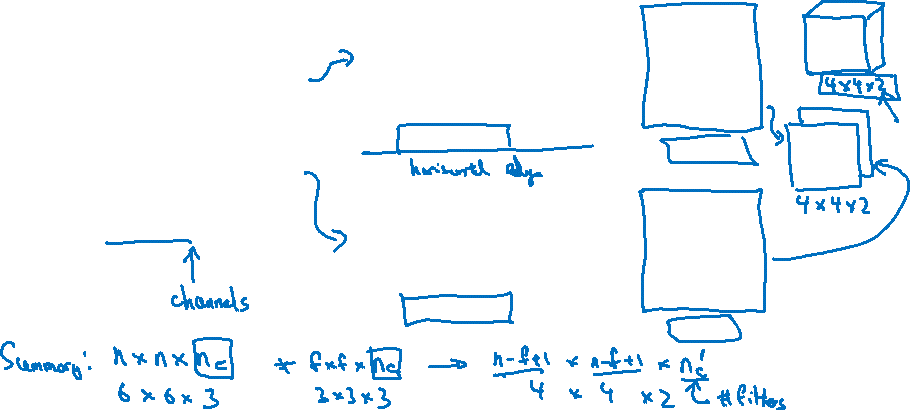 4 × 4 × 2
horizontal edge
4 × 4 × 2
channels
Summary: n × n × n_c * f × f × n_c → n-f+1 × n-f+1 × n_c'
6 × 6 × 3 3 × 3 × 3 4 × 4 × 2 #filters